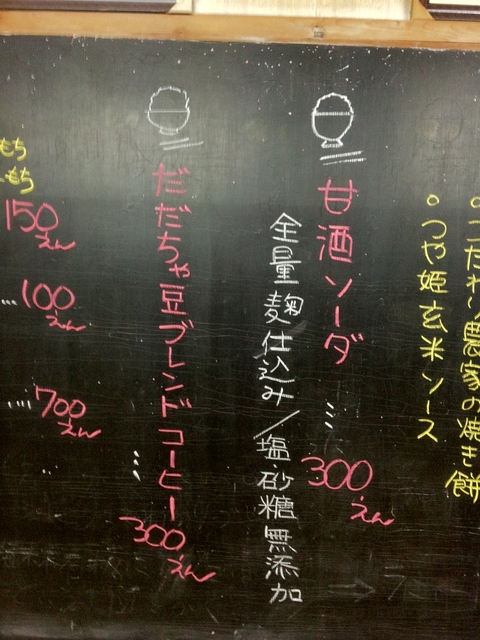 こだわり農家の焼き餅
つや姫玄米ソース
甘酒ソーダ … 300えん
全量麹仕込み／塩・砂糖無添加
だだちゃ豆ブレンドコーヒー … 300えん
もち
もち
150えん
…100えん
…700えん